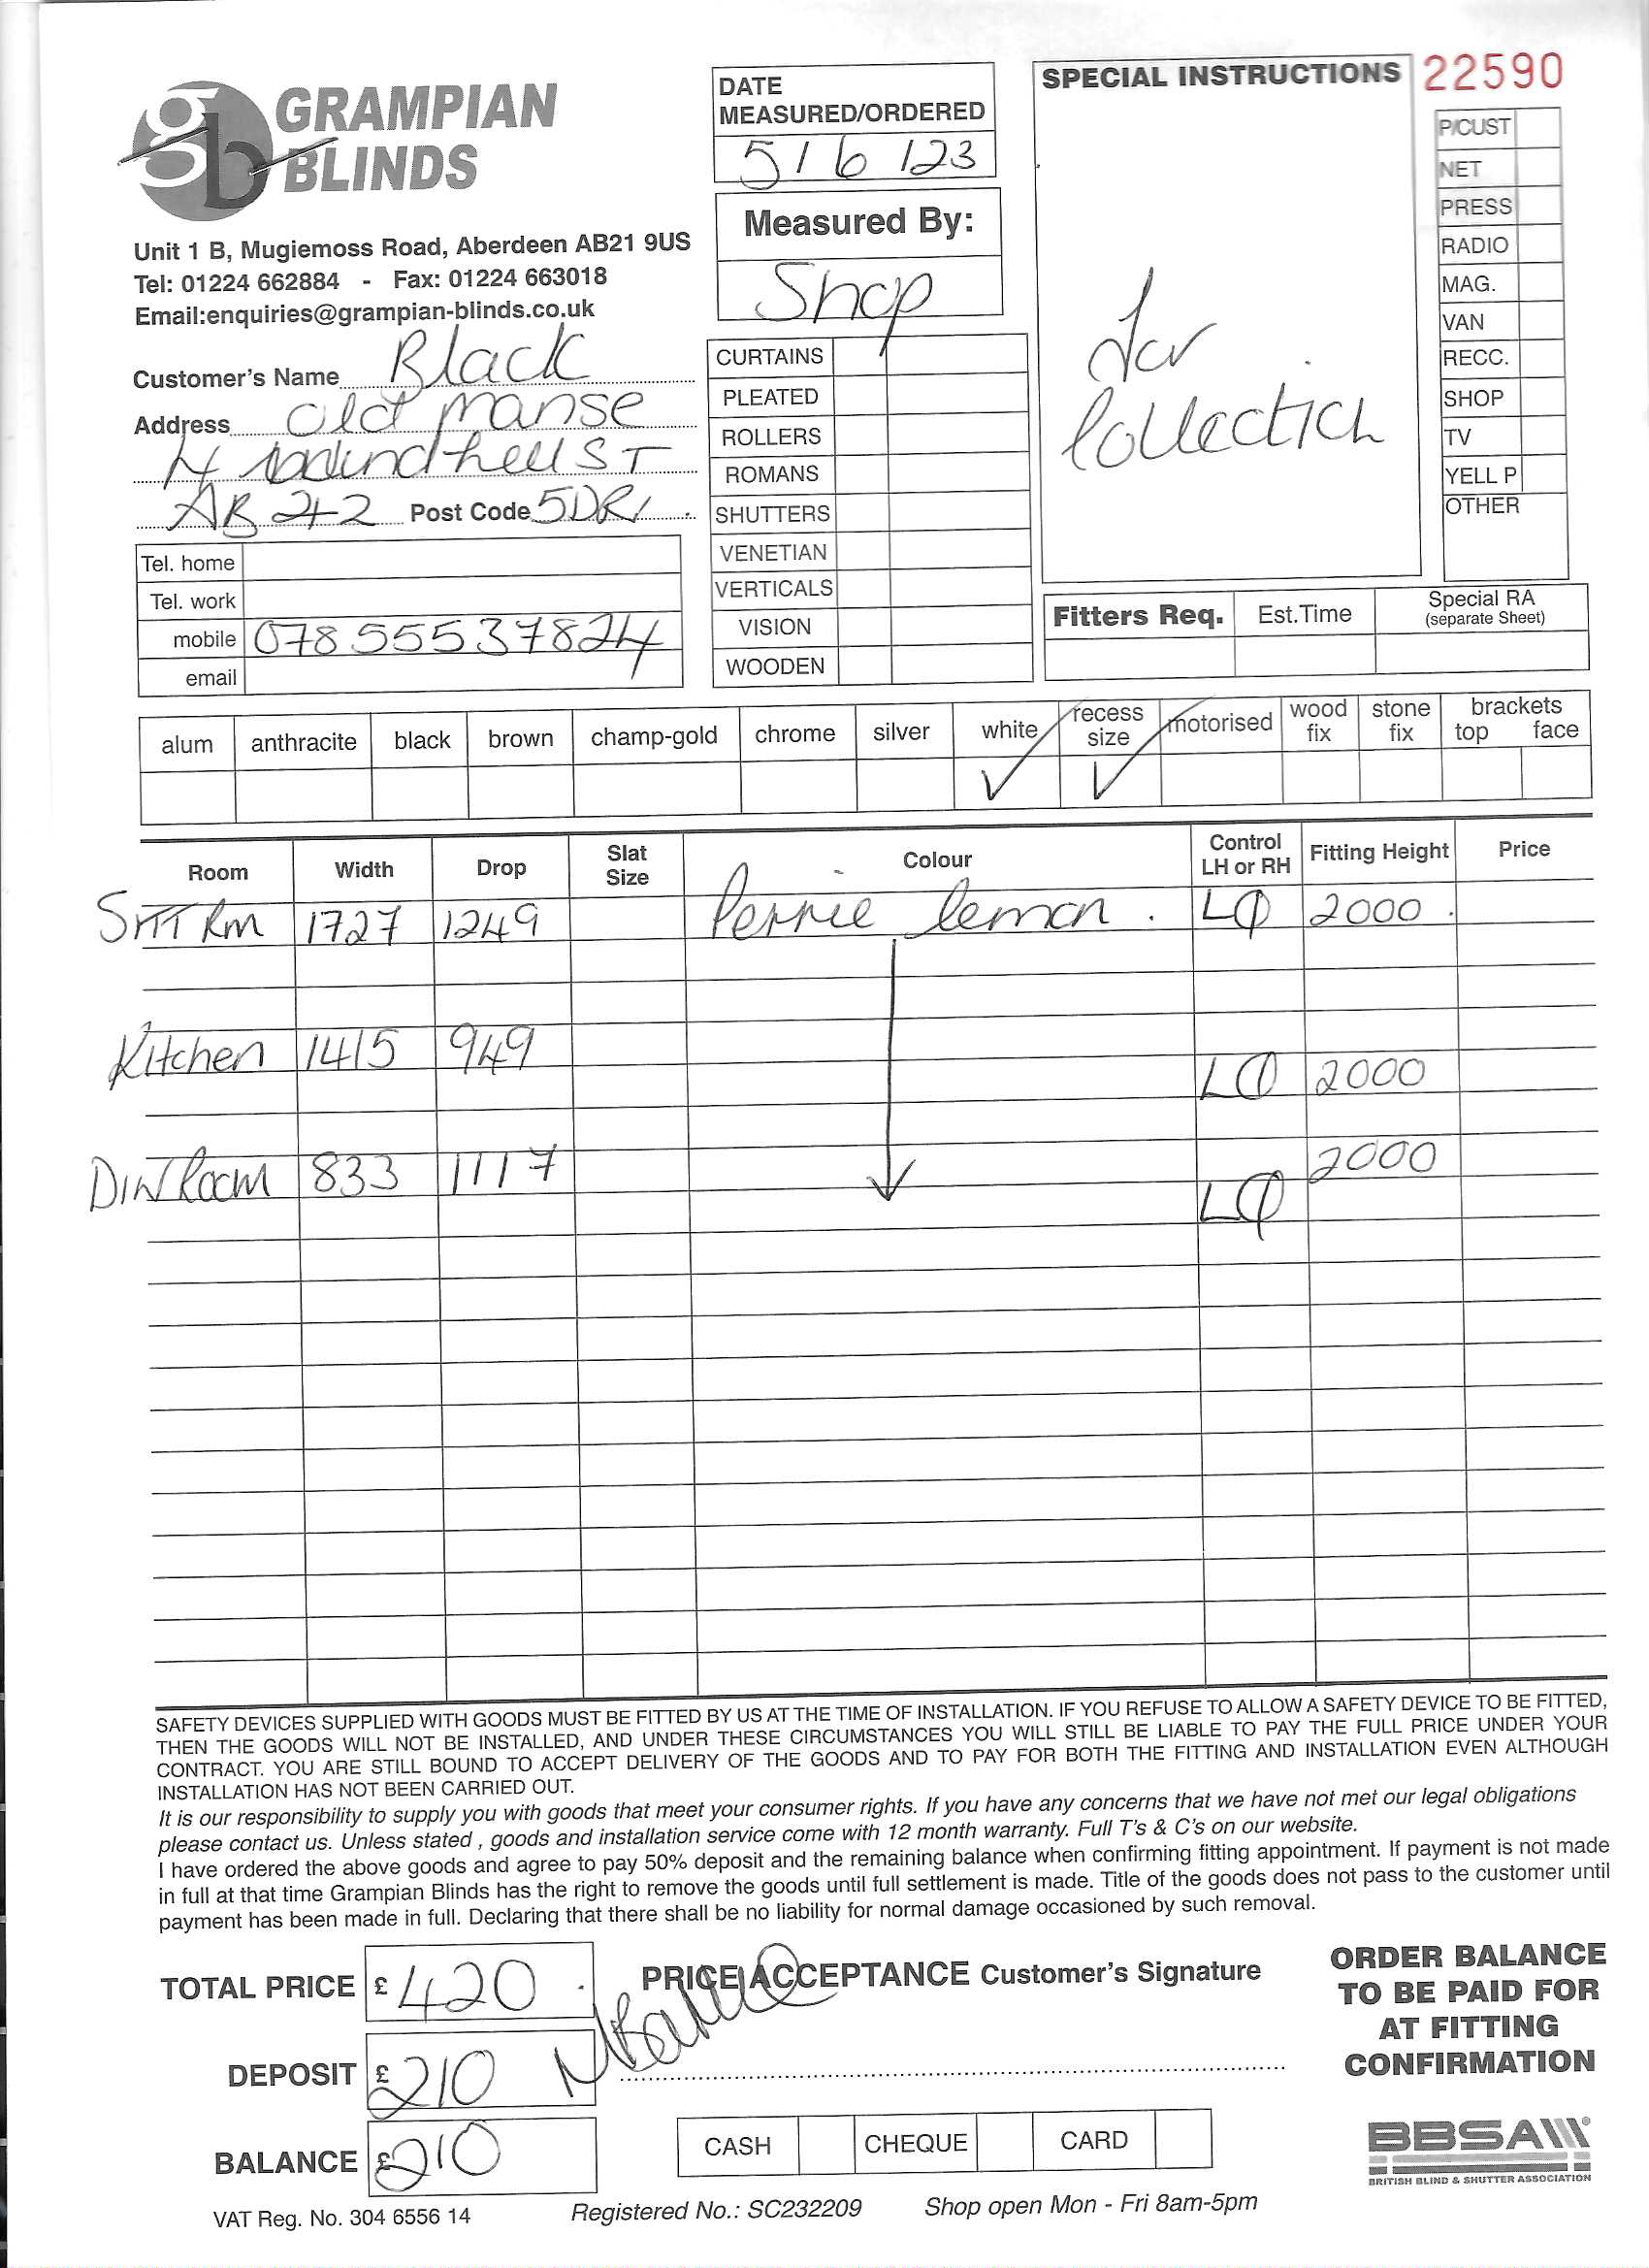 GRAMPIAN
BLINDS
Unit 1 B, Mugiemoss Road, Aberdeen AB21 9US
Tel: 01224 662884 - Fax: 01224 663018
Email:enquiries@grampian-blinds.co.uk
Customer's Name Black
Address Old Manse
4 ST
AB42 Post Code 5DR
Tel. home
Tel. work
mobile 07855537824
email
DATE
MEASURED/ORDERED
5/6/23
Measured By:
Shop
CURTAINS
PLEATED
ROLLERS
ROMANS
SHUTTERS
VENETIAN
VERTICALS
VISION
WOODEN
SPECIAL INSTRUCTIONS
for
Collection
22590
P/CUST
NET
PRESS
RADIO
MAG.
VAN
RECC.
SHOP
TV
YELL P
OTHER
Fitters Req. Est.Time Special RA
(separate Sheet)
alum anthracite black brown champ-gold chrome silver white recess size motorised wood fix stone fix brackets top face
✓ ✓
Room Width Drop Slat Size Colour Control LH or RH Fitting Height Price
SITT Rm 1727 1249 Perrie lemon. 2000.
Kitchen 1415 949 2000
DIN Room 833 1117 2000
SAFETY DEVICES SUPPLIED WITH GOODS MUST BE FITTED BY US AT THE TIME OF INSTALLATION. IF YOU REFUSE TO ALLOW A SAFETY DEVICE TO BE FITTED,
THEN THE GOODS WILL NOT BE INSTALLED, AND UNDER THESE CIRCUMSTANCES YOU WILL STILL BE LIABLE TO PAY THE FULL PRICE UNDER YOUR
CONTRACT. YOU ARE STILL BOUND TO ACCEPT DELIVERY OF THE GOODS AND TO PAY FOR BOTH THE FITTING AND INSTALLATION EVEN ALTHOUGH
INSTALLATION HAS NOT BEEN CARRIED OUT.
It is our responsibility to supply you with goods that meet your consumer rights. If you have any concerns that we have not met our legal obligations
please contact us. Unless stated , goods and installation service come with 12 month warranty. Full T's & C's on our website.
I have ordered the above goods and agree to pay 50% deposit and the remaining balance when confirming fitting appointment. If payment is not made
in full at that time Grampian Blinds has the right to remove the goods until full settlement is made. Title of the goods does not pass to the customer until
payment has been made in full. Declaring that there shall be no liability for normal damage occasioned by such removal.
TOTAL PRICE £420.
DEPOSIT £210
BALANCE £210
PRICE ACCEPTANCE Customer's Signature
CASH CHEQUE CARD
ORDER BALANCE
TO BE PAID FOR
AT FITTING
CONFIRMATION
BBSA
BRITISH BLIND & SHUTTER ASSOCIATION
VAT Reg. No. 304 6556 14 Registered No.: SC232209 Shop open Mon - Fri 8am-5pm